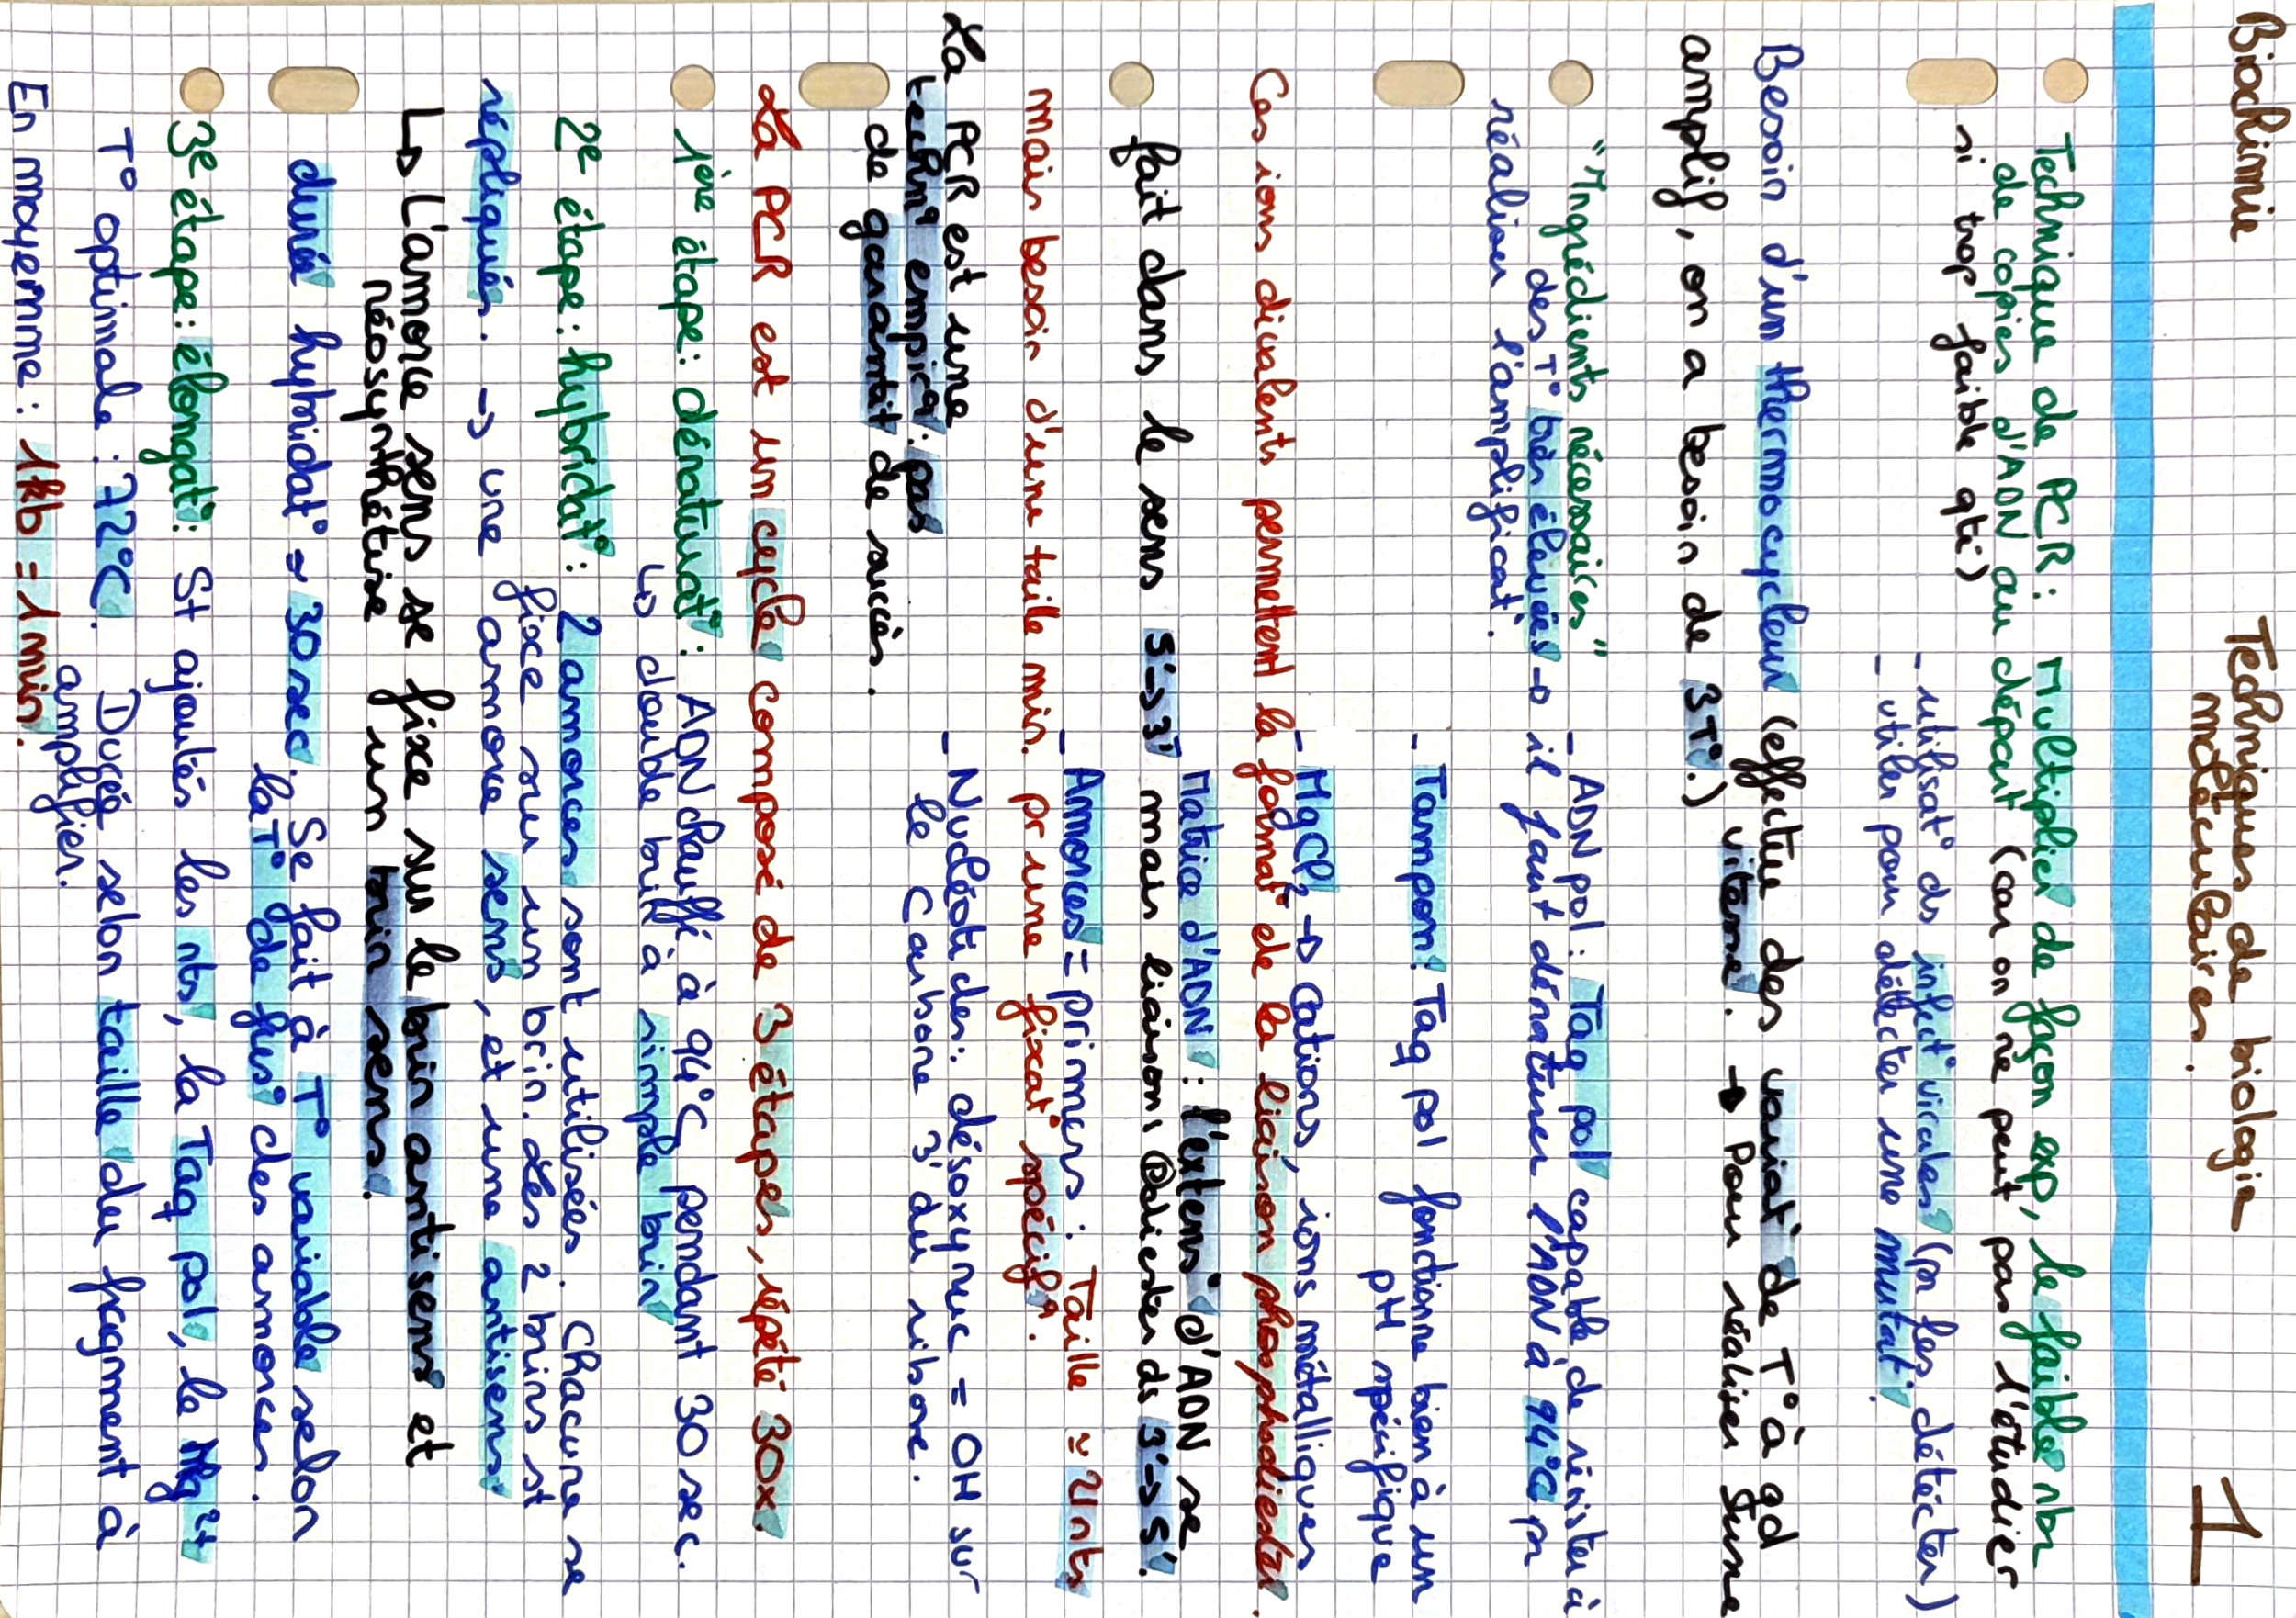 Biochimie
Techniques de biologie
moléculaires.
1
Technique de PCR : Multiplier de façon exp, le faible nbr
de copies d'ADN au départ (car on ne peut pas l'étudier
si trop faible qté)
- utilisat° ds infect° virales (pr les détécter)
- utiles pour détécter une mutat°.
Besoin d'un thermocycleur (effectue des variat° de T° à gd
vitesse. → Pour réaliser
amplif, on a besoin de 3 T°.)
"Ingrédients nécessaires"
- ADN pol : Taq pol capable de résister à
des T° très élevées → il faut dénaturer l'ADN à 94°C pr
réaliser l'amplificat°.
- Tampon : Taq pol fonctionne bien à un
pH spécifique
- MgCl2 → Cations, ions métalliques
Ces ions divalents permettent la format° de la liaison phosphodiester.
Matrice d'ADN : l'extens° d'ADN se
fait dans le sens 5'→3' mais liaison phodiester ds 3'→5'.
- Amorces = primers : Taille ≃ 21nts
mais besoin d'une taille min. pr une fixat° spécifq.
- Nucléotides : désoxynuc = OH sur
le Carbone 3' du ribose.
La PCR est une
techniq empiriq : pas
de garantit de succès.
La PCR est un cycle composé de 3 étapes, répété 30x.
1ère étape : dénaturat° : ADN chauffé à 94°C pendant 30 sec.
↳ double brin à simple brin
2e étape : hybridat° : 2 amorces sont utilisées. Chacune se
fixe sur un brin. Les 2 brins st
répliqués. → une amorce sens, et une antisens.
↳ L'amorce sens se fixe sur le brin antisens et
néosynthétise un brin sens.
durée hybridat° ≃ 30 sec. Se fait à T° variable selon
la T° de fus° des amorces.
3e étape : élongat° : St ajoutés les nts, la Taq pol, le Mg2+
T° optimale : 72°C. Durée selon taille du fragment à
amplifier.
En moyenne : 1kb = 1 min.